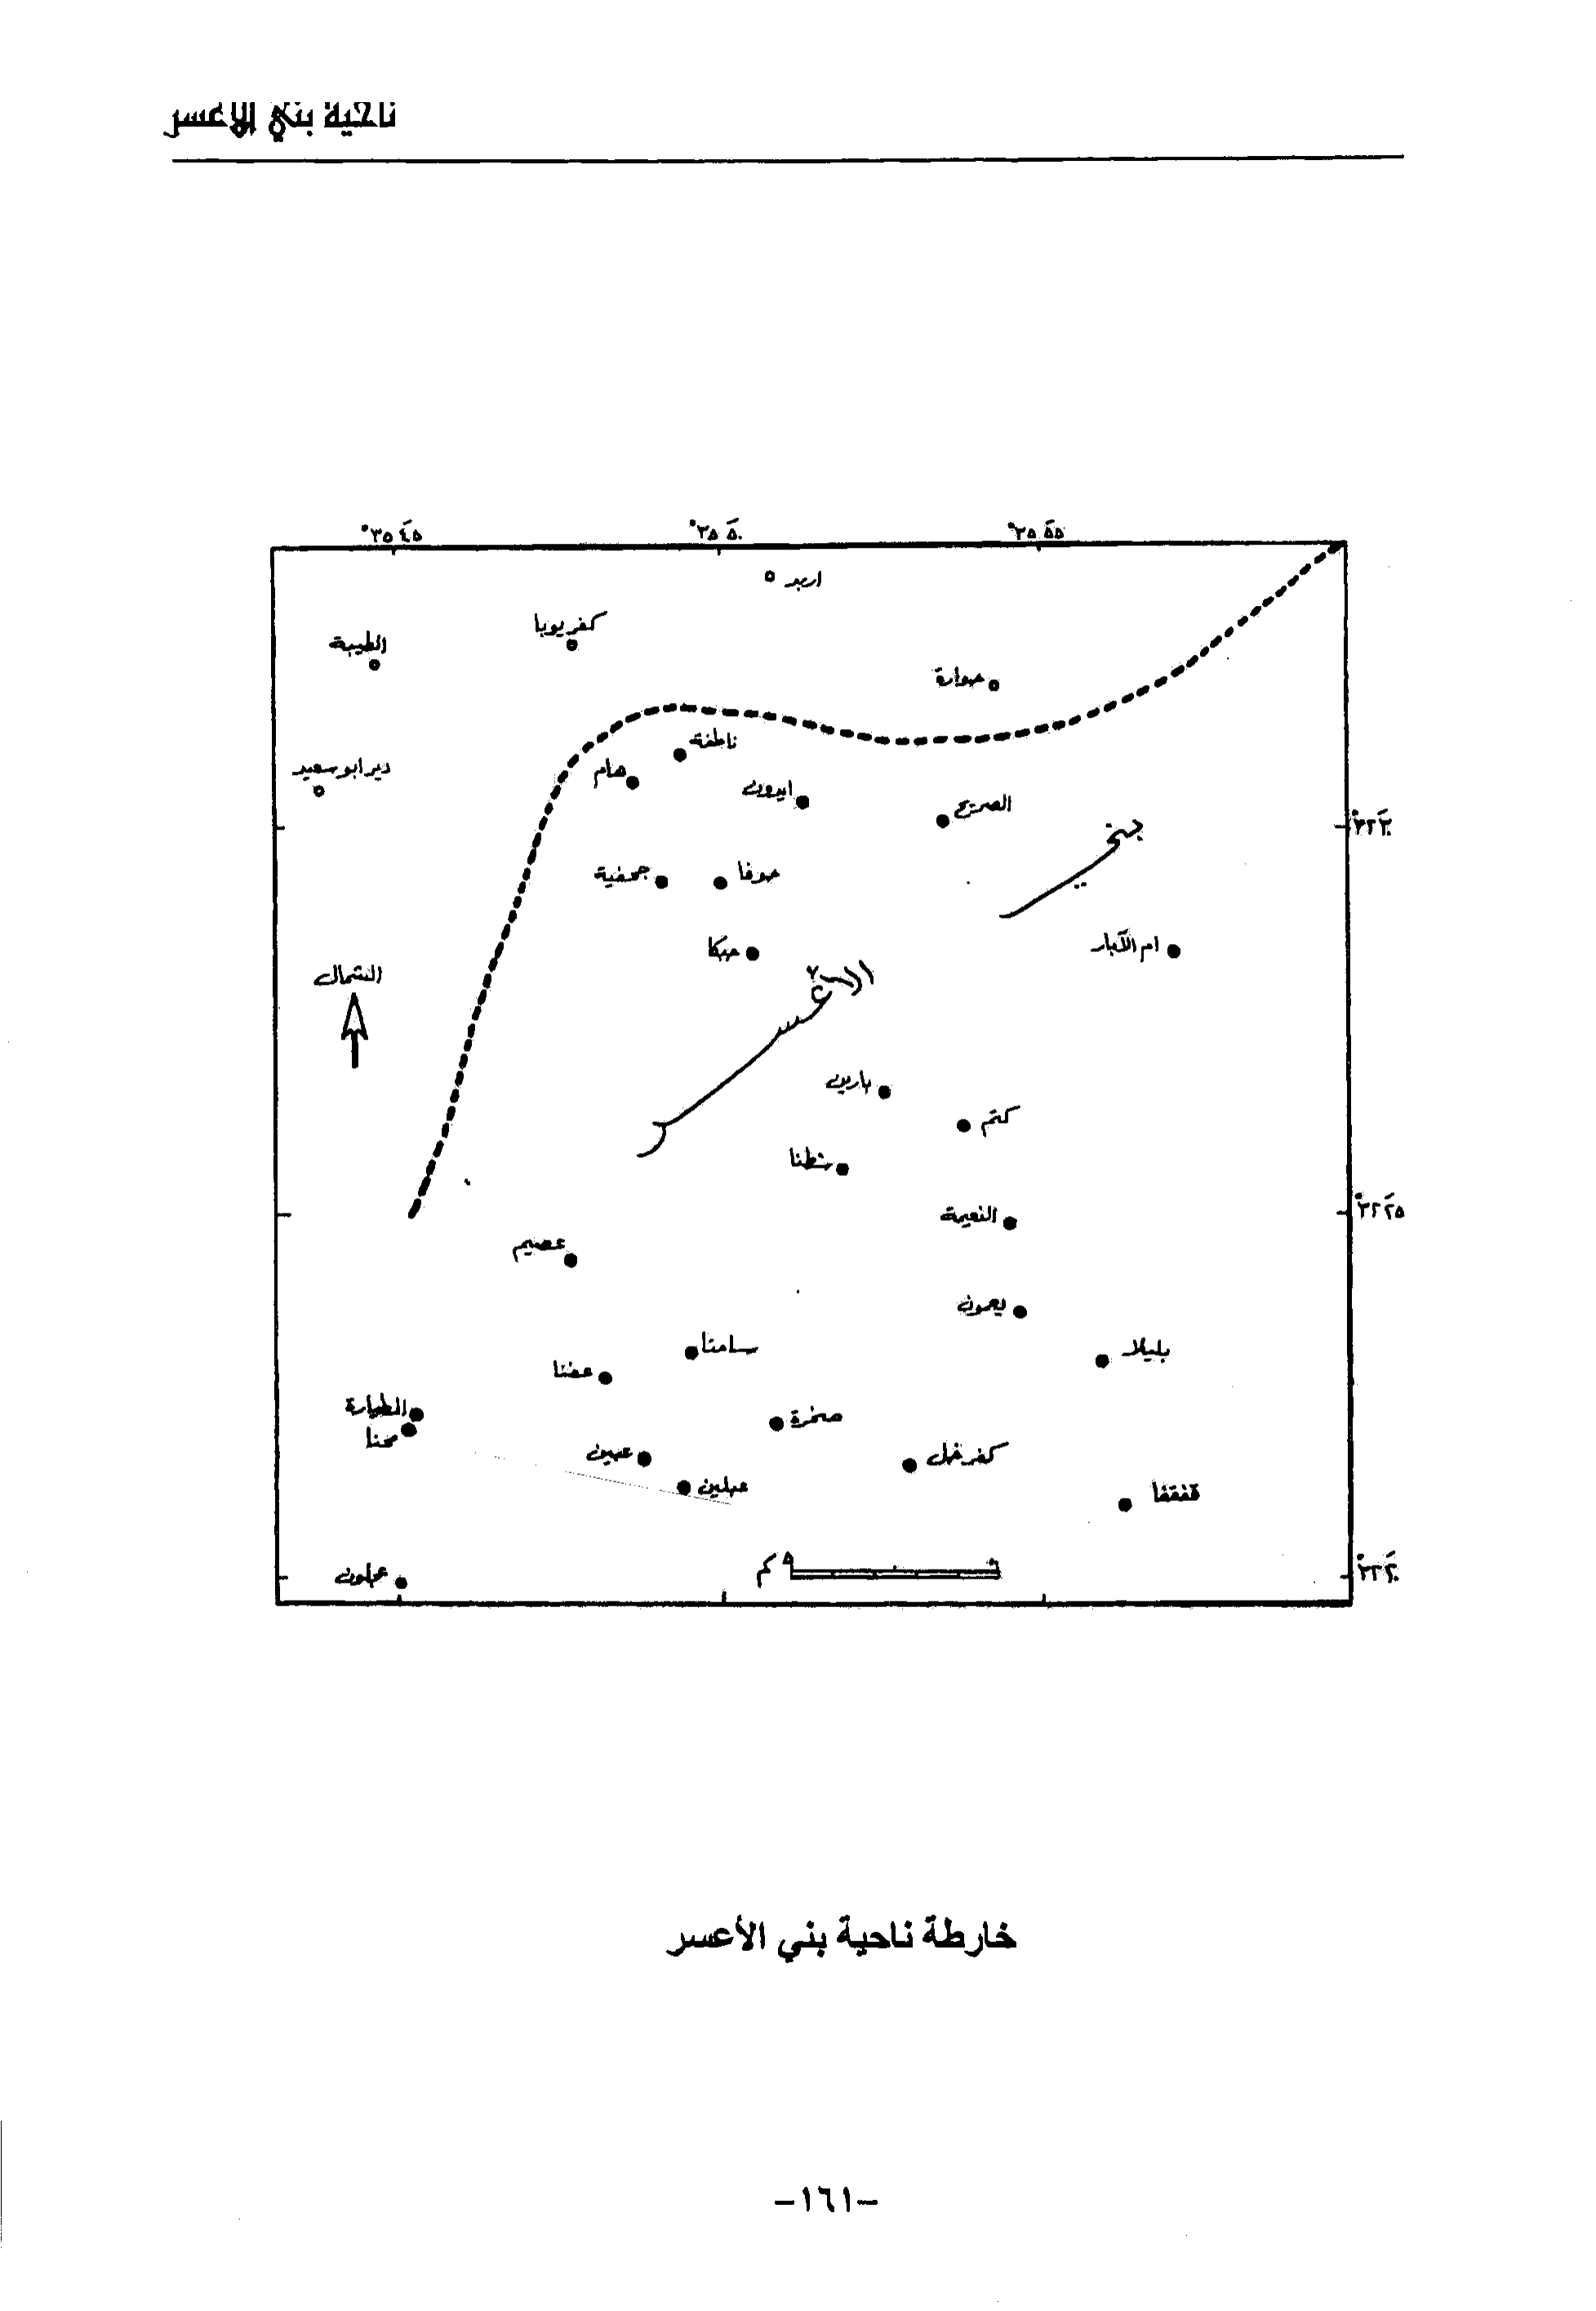 ناحية بني الاعسر
°٣٥ ٤٥َ
°٣٥ ٥٠َ
°٣٥ ٥٥َ
اربد
كفر يوبا
الطيبة
حوارة
ناطفة
هام
دير ابو سعيد
ايدون
الصريح
بني
°٣٢ ٣٠َ
جحفية
حوفا
حبكا
ام الآبار
الشمال
الاعسر
بارين
كتم
شطنا
النعيمة
°٣٢ ٢٥َ
عصيم
يعمون
سامتا
بليلا
عفنا
الطيارة
صخرة
محنا
عبين
كفر خل
عبلين
قفقفا
٥ كم
°٣٢ ٢٠َ
عجلون
خارطة ناحية بني الأعسر
-١٦١-